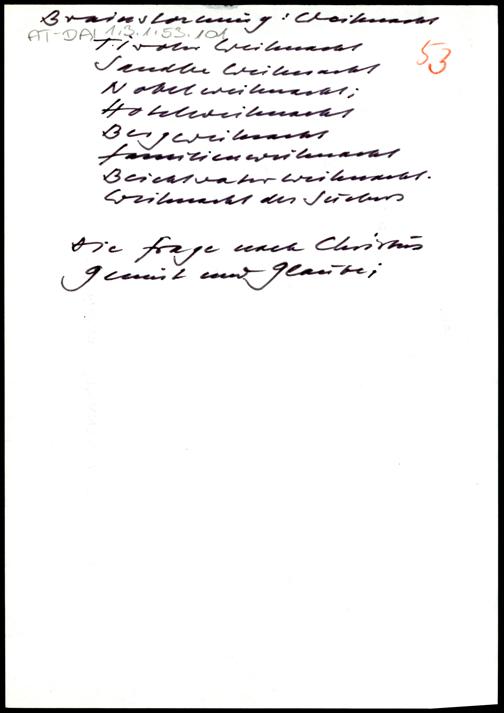 Brainstorming: Weihnacht
AT-DAI 1.3.1.53.101
53
Tiroler Weihnacht
Weihnacht
Nobelweihnacht;
Hotelweihnacht
Bergweihnacht
Familienweihnacht
Beichtvaterweihnacht.
Weihnacht des Suchers
Die Frage nach Christus
Gemüt und Glaube;